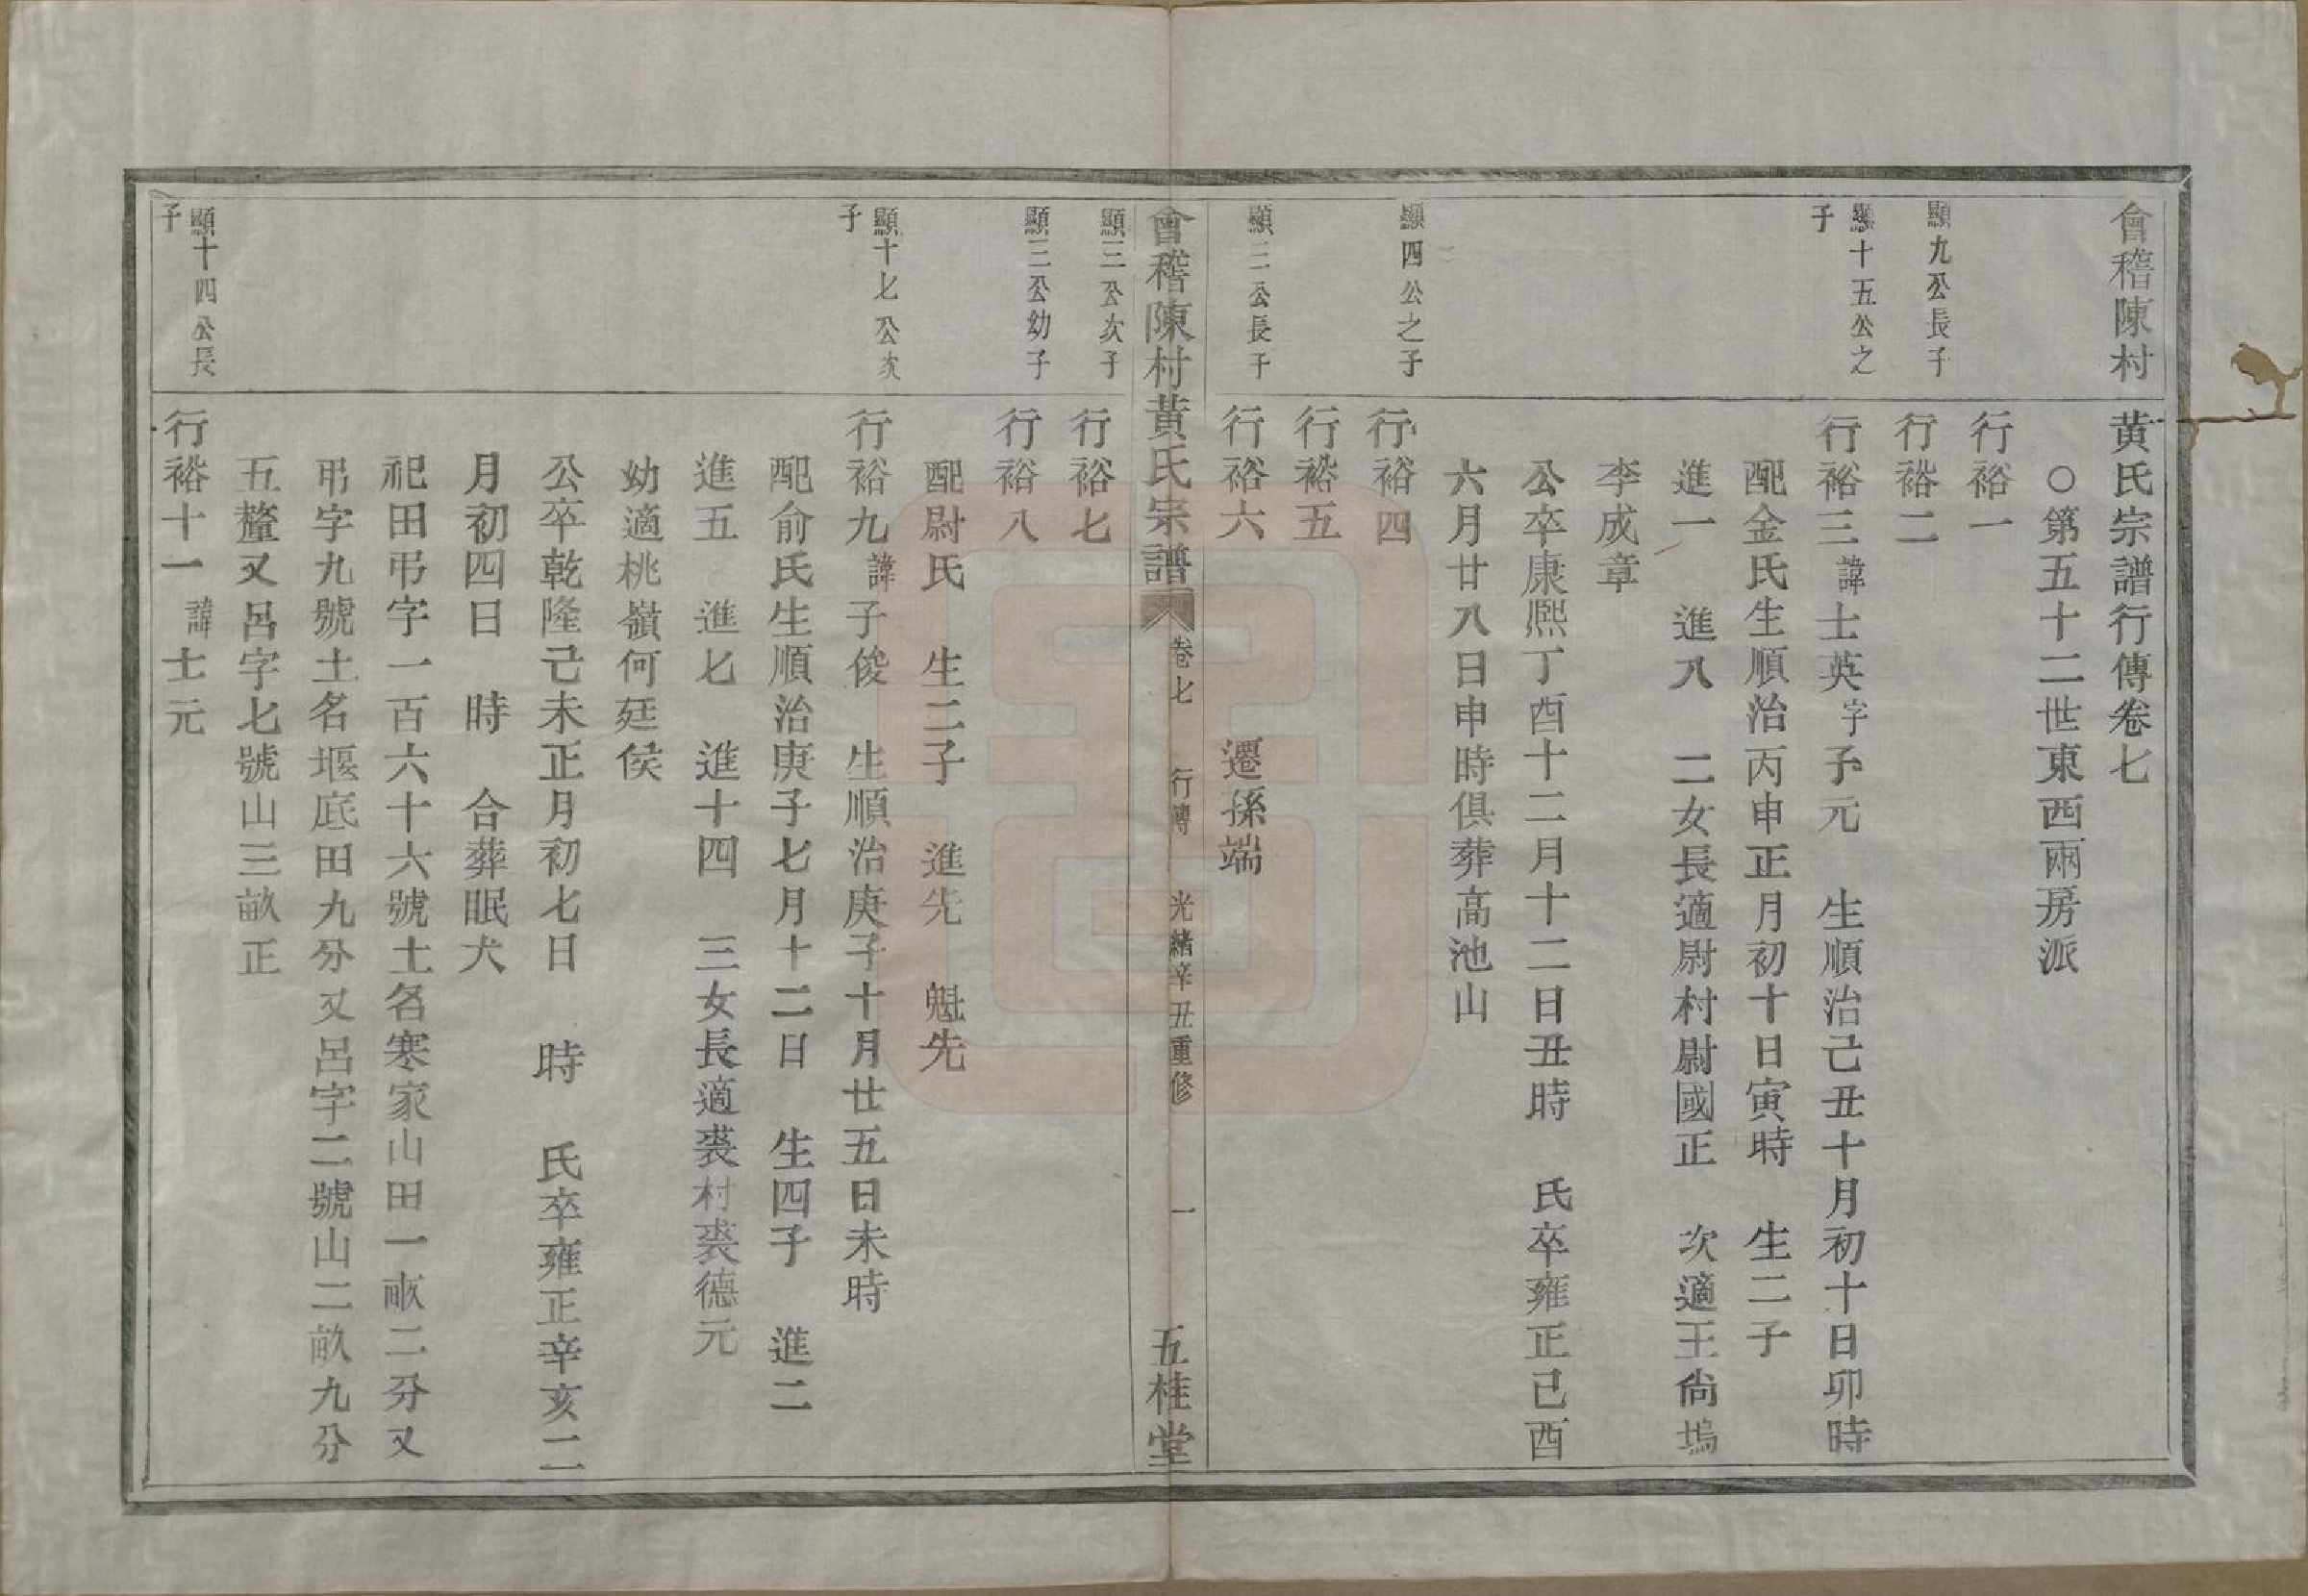 會稽陳村黃氏宗譜行傳卷七
○第五十二世東西兩房派
行裕一
顯九公長子
行裕二
顯十五公之子
行裕三諱士英字子元　生順治己丑十月初十日卯時
配金氏生順治丙申正月初十日寅時　生二子
進一　進八　二女長適尉村尉國正　次適王尙塢
李成章
公卒康熙丁酉十二月十二日丑時　氏卒雍正己酉
六月廿八日申時俱葬高池山
顯四公之子
行裕四
行裕五
顯二公長子
行裕六　遷孫端
會稽陳村黃氏宗譜　卷七　行傳　光緒辛丑重修　一　五桂堂
顯三公次子
行裕七
顯三公幼子
行裕八
配尉氏　生二子　進先　魁先
顯十七公次子
行裕九諱子俊　生順治庚子十月廿五日未時
配俞氏生順治庚子七月十二日　生四子　進二
進五　進七　進十四　三女長適裘村裘德元
幼適桃嶺何廷侯
公卒乾隆己未正月初七日　時　氏卒雍正辛亥二
月初四日　時　合葬眠犬
祀田弔字一百六十六號土名寒家山田一畝二分又
弔字九號土名堰底田九分又呂字二號山二畝九分
五釐又呂字七號山三畝正
顯十四公長子
行裕十一諱士元